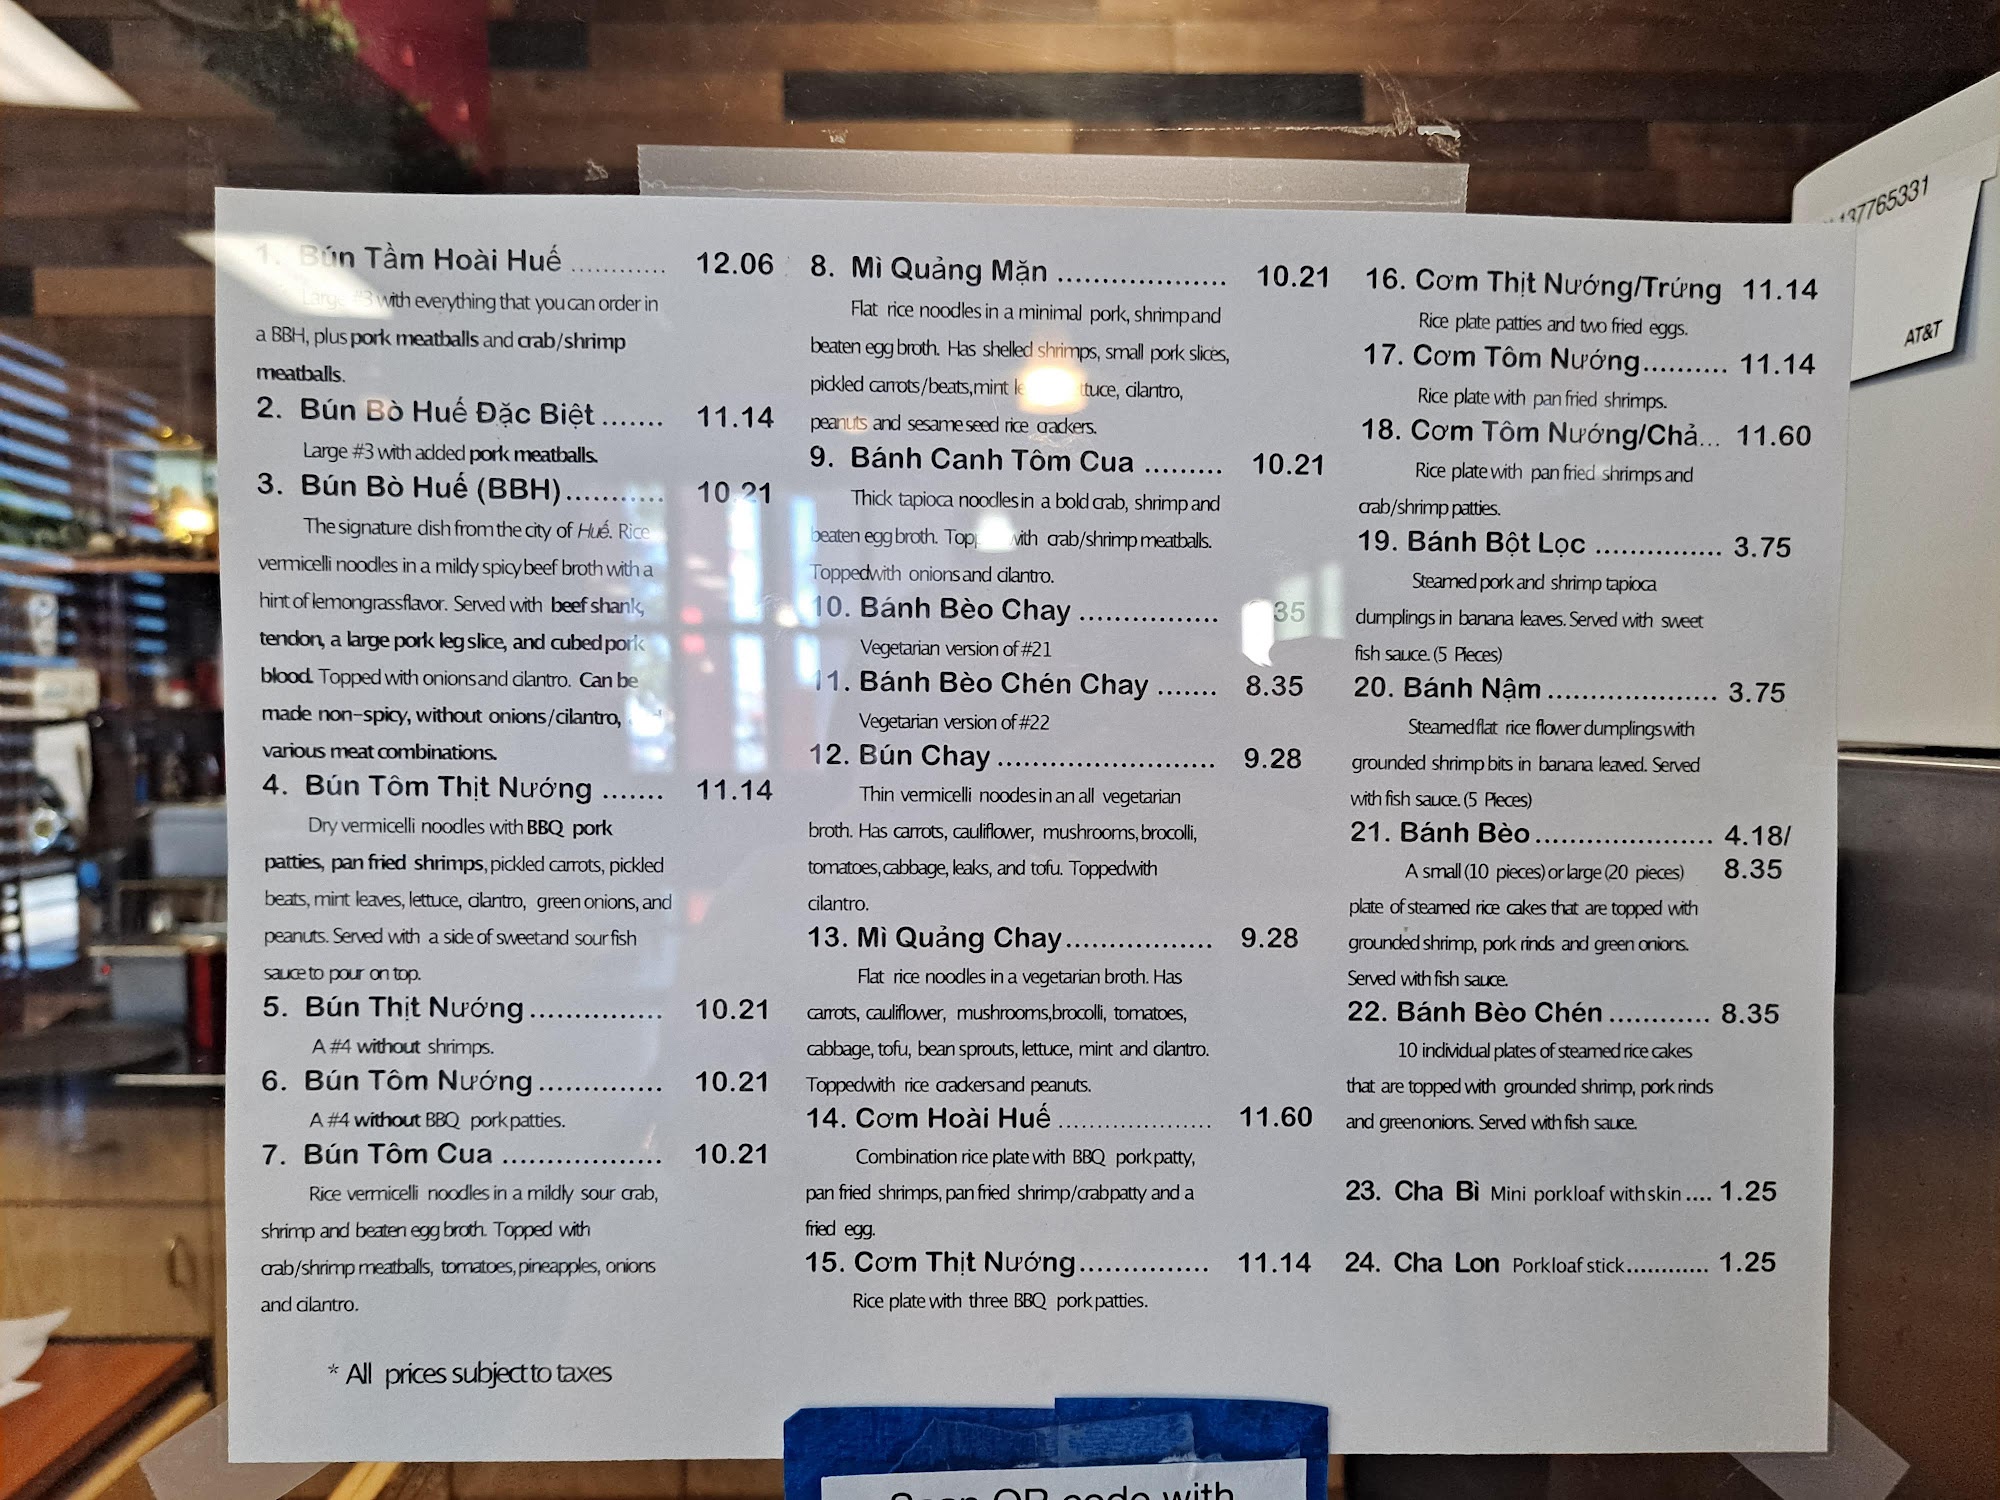 1. Bún Tầm Hoài Huế ............ 12.06
Large #3 with everything that you can order in
a BBH, plus pork meatballs and crab/shrimp
meatballs.
2. Bún Bò Huế Đặc Biệt ....... 11.14
Large #3 with added pork meatballs.
3. Bún Bò Huế (BBH)........... 10.21
The signature dish from the city of Huế. Rice
vermicelli noodles in a mildy spicy beef broth with a
hint of lemongrass flavor. Served with beef shank,
tendon, a large pork leg slice, and cubed pork
blood. Topped with onions and cilantro. Can be
made non-spicy, without onions/cilantro,
various meat combinations.
4. Bún Tôm Thịt Nướng ....... 11.14
Dry vermicelli noodles with BBQ pork
patties, pan fried shrimps, pickled carrots, pickled
beats, mint leaves, lettuce, cilantro, green onions, and
peanuts. Served with a side of sweet and sour fish
sauce to pour on top.
5. Bún Thịt Nướng............... 10.21
A #4 without shrimps.
6. Bún Tôm Nướng.............. 10.21
A #4 without BBQ pork patties.
7. Bún Tôm Cua .................. 10.21
Rice vermicelli noodles in a mildly sour crab,
shrimp and beaten egg broth. Topped with
crab/shrimp meatballs, tomatoes, pineapples, onions
and cilantro.
* All prices subject to taxes
8. Mì Quảng Mặn ................... 10.21
Flat rice noodles in a minimal pork, shrimp and
beaten egg broth. Has shelled shrimps, small pork slices,
pickled carrots/beats, mint cilantro,
peanuts and sesame seed rice crackers.
9. Bánh Canh Tôm Cua ......... 10.21
Thick tapioca noodles in a bold crab, shrimp and
beaten egg broth. Topped with crab/shrimp meatballs.
Topped with onions and cilantro.
10. Bánh Bèo Chay ................. 
Vegetarian version of #21
11. Bánh Bèo Chén Chay ....... 8.35
Vegetarian version of #22
12. Bún Chay ......................... 9.28
Thin vermicelli noodes in an all vegetarian
broth. Has carrots, cauliflower, mushrooms, brocolli,
tomatoes, cabbage, leaks, and tofu. Topped with
cilantro.
13. Mì Quảng Chay.................. 9.28
Flat rice noodles in a vegetarian broth. Has
carrots, cauliflower, mushrooms, brocolli, tomatoes,
cabbage, tofu, bean sprouts, lettuce, mint and cilantro.
Topped with rice crackers and peanuts.
14. Cơm Hoài Huế ..................... 11.60
Combination rice plate with BBQ pork patty,
pan fried shrimps, pan fried shrimp/crab patty and a
fried egg.
15. Cơm Thịt Nướng............... 11.14
Rice plate with three BBQ pork patties.
16. Cơm Thịt Nướng/Trứng 11.14
Rice plate patties and two fried eggs.
17. Cơm Tôm Nướng.......... 11.14
Rice plate with pan fried shrimps.
18. Cơm Tôm Nướng/Chả... 11.60
Rice plate with pan fried shrimps and
crab/shrimp patties.
19. Bánh Bột Lọc ............... 3.75
Steamed pork and shrimp tapioca
dumplings in banana leaves. Served with sweet
fish sauce. (5 Pieces)
20. Bánh Nậm .................... 3.75
Steamed flat rice flower dumplings with
grounded shrimp bits in banana leaved. Served
with fish sauce. (5 Pieces)
21. Bánh Bèo..................... 4.18/
A small (10 pieces) or large (20 pieces) 8.35
plate of steamed rice cakes that are topped with
grounded shrimp, pork rinds and green onions.
Served with fish sauce.
22. Bánh Bèo Chén ............ 8.35
10 individual plates of steamed rice cakes
that are topped with grounded shrimp, pork rinds
and green onions. Served with fish sauce.
23. Cha Bì Mini porkloaf with skin .... 1.25
24. Cha Lon Porkloaf stick............ 1.25
137765331
AT&T
Scan QR code with